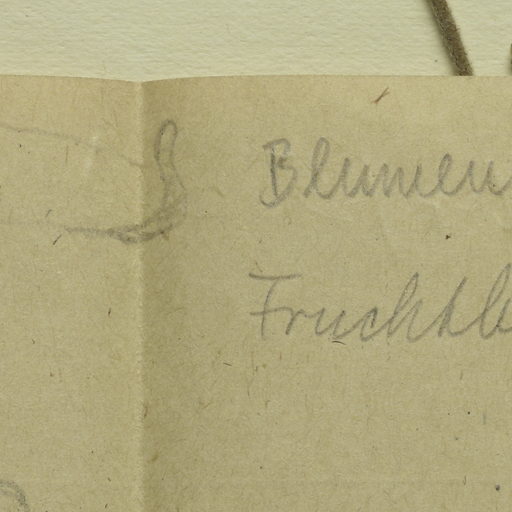 Blumen
Frucht